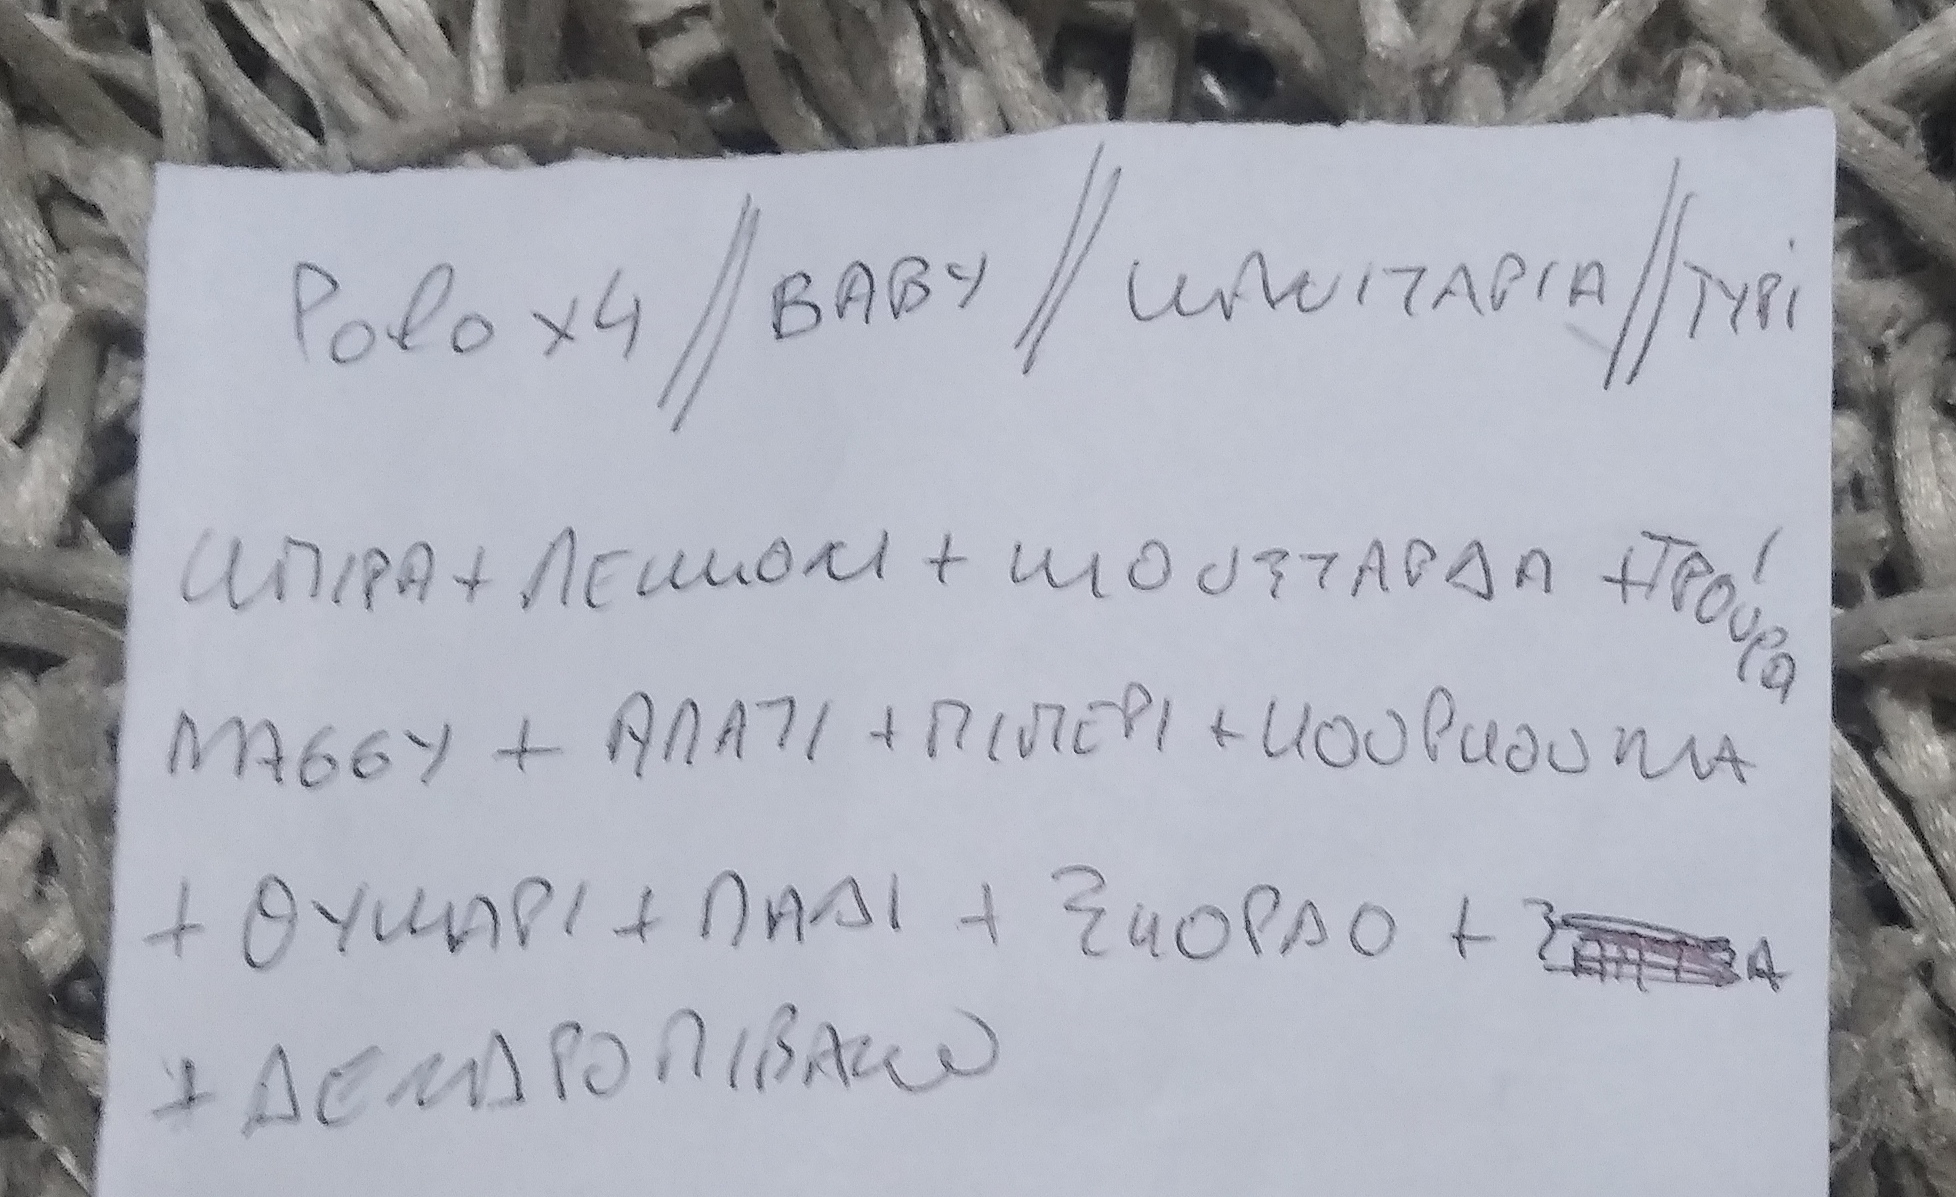 Polo x4 // BABY // ΜΑΝΙΤΑΡΙΑ // ΤΥΡΙ
ΜΠΙΡΑ + ΛΕΜΟΝΙ + ΜΟΥΣΤΑΡΔΑ + ΤΡΟΥΦΑ
MAGGY + ΑΛΑΤΙ + ΠΙΠΕΡΙ + ΚΟΥΡΚΟΥΜΑ
+ ΘΥΜΑΡΙ + ΛΑΔΙ + ΣΚΟΡΔΟ +
+ ΔΕΝΔΡΟΛΙΒΑΝΟ